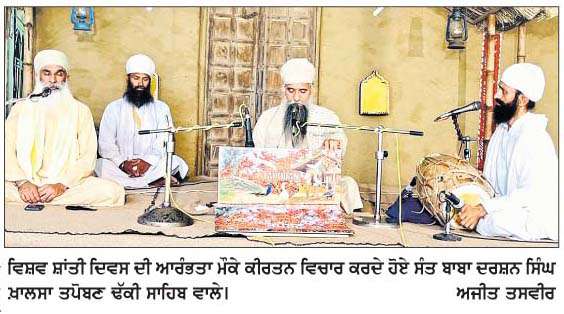 ਵਿਸ਼ਵ ਸ਼ਾਂਤੀ ਦਿਵਸ ਦੀ ਆਰੰਭਤਾ ਮੌਕੇ ਕੀਰਤਨ ਵਿਚਾਰ ਕਰਦੇ ਹੋਏ ਸੰਤ ਬਾਬਾ ਦਰਸ਼ਨ ਸਿੰਘ
ਖ਼ਾਲਸਾ ਤਪੋਬਣ ਢੱਕੀ ਸਾਹਿਬ ਵਾਲੇ। ਅਜੀਤ ਤਸਵੀਰ